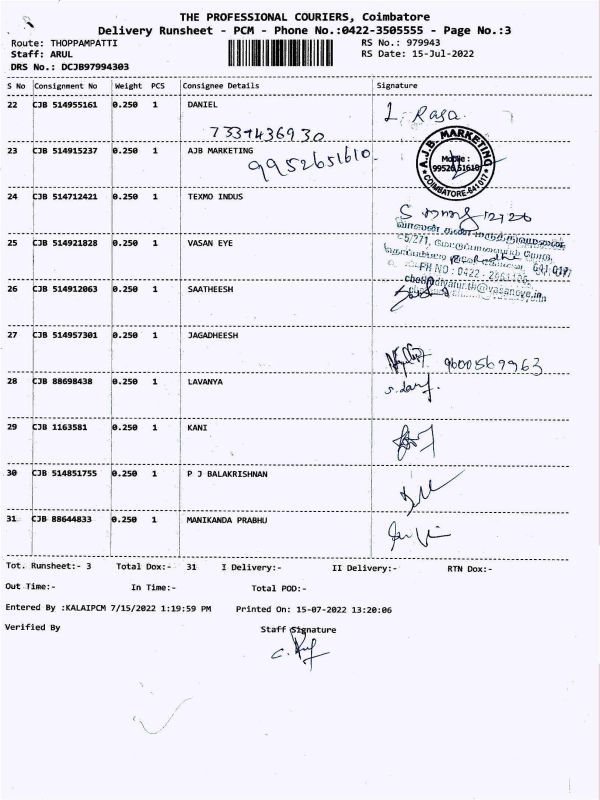 THE PROFESSIONAL COURIERS, Coimbatore
Delivery Runsheet - PCM - Phone No.:0422-3505555 - Page No.:3
Route: THOPPAMPATTI
RS No.: 979943
Staff: ARUL
RS Date: 15-Jul-2022
DRS No.: DCJB97994303
S No Consignment No Weight PCS Consignee Details Signature
22 CJB 514955161 0.250 1 DANIEL
L. Rasa
7334436930
23 CJB 514915237 0.250 1 AJB MARKETING
9952651610
A.J.B. MARKETING
Mobile :
99526 51610
COIMBATORE-641 017
24 CJB 514712421 0.250 1 TEXMO INDUS
25 CJB 514921828 0.250 1 VASAN EYE
வாசன் கண் மருத்துவமனை
5/271,
641 017
PH NO : 0422 -
@vasaneye.in
26 CJB 514912063 0.250 1 SAATHEESH
27 CJB 514957301 0.250 1 JAGADHEESH
9600569963
28 CJB 88698438 0.250 1 LAVANYA
29 CJB 1163581 0.250 1 KANI
30 CJB 514851755 0.250 1 P J BALAKRISHNAN
31 CJB 88644833 0.250 1 MANIKANDA PRABHU
Tot. Runsheet:- 3 Total Dox:- 31 I Delivery:- II Delivery:- RTN Dox:-
Out Time:- In Time:- Total POD:-
Entered By :KALAIPCM 7/15/2022 1:19:59 PM Printed On: 15-07-2022 13:20:06
Verified By Staff Signature